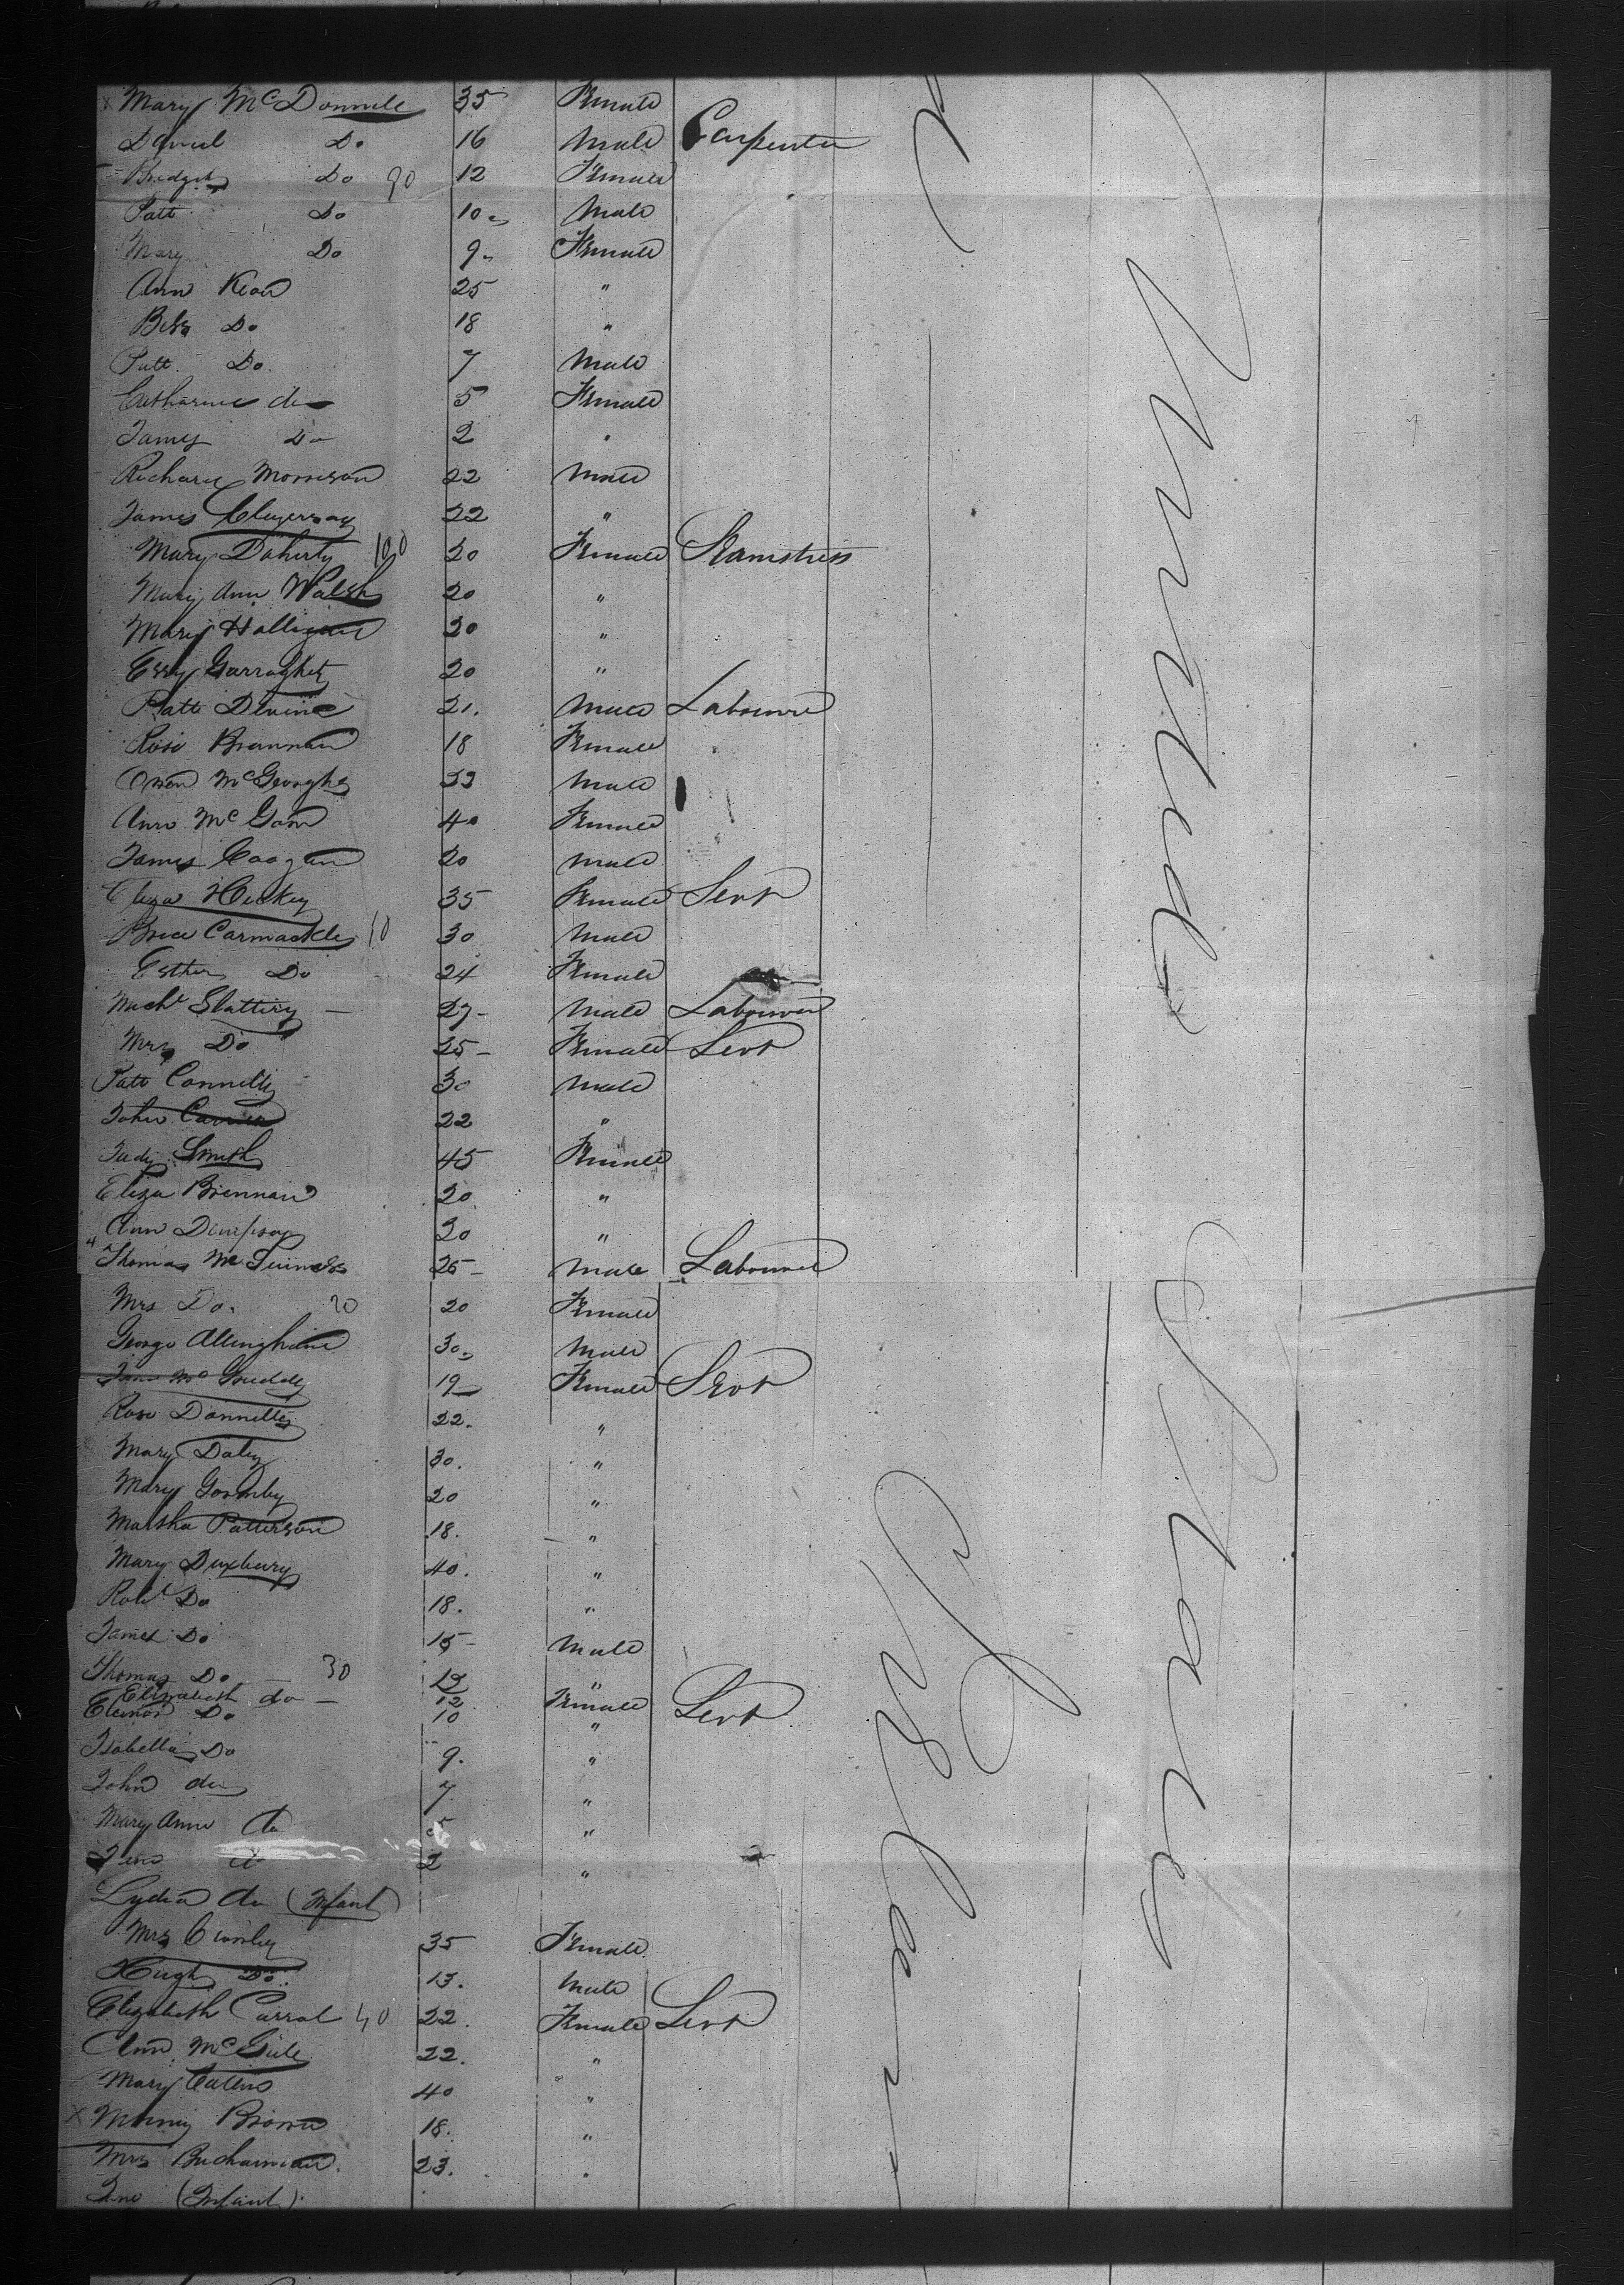 Mary McDonnell 35 Female
Daniel Do 16 Male Carpenter
Bridget Do 90 12 Female
Patt Do 10 Male
Mary Do 9 Female
Ann Kean 25 "
Bess Do 18 "
Patt Do 7 Male
Catharine do 5 Female
James Do 2 "
Richard Morrison 22 Male
James 22 "
Mary Doherty 100 20 Female Seamstress
Mary Ann Walsh 20 "
Mary Halligan 20 "
Essy Garraghty 20 "
Patt Devine 21 Male Labourer
Rose Brannan 18 Female
Owen McGeoghe 33 Male
Ann McGann 40 Female
James Coogan 20 Male
Eliza Hickey 35 Female Servt
Brice Carmackle 10 30 Male
Esther Do 24 Female
Michl Slattery 27 Male Labourer
Mrs Do 25 Female Servt
Patt Connelly 30 Male
John Carrier 22 "
Judy Smith 45 Female
Eliza Brennan 20 "
Ann Dempsey 20 "
Thomas McGuiness 25 Male Labourer
Mrs Do. 20 20 Female
George Allingham 30 Male
Jane 19 Female Servt
Rose Donnelly 22. "
Mary Daley 30. "
Mary Gormley 20 "
Martha Patterson 18. "
Mary Duxbury 40. "
Robt Do 18. "
James Do 15 Male
Thomas Do 30 13 "
Elizabeth do 12 Female Servt
Eleanor Do 10 "
Isabella Do 9. "
John do 7 "
Mary Ann do 5 "
Jane do 2 "
Lydia do (Infant)
Mrs 35 Female
Hugh Do. 13. Male
Elizabeth Carrol 40 22. Female Servt
Ann McGill 22. "
Mary 40 "
Brown 18. "
Mrs Buchannan 23. "
Jno (Infant)